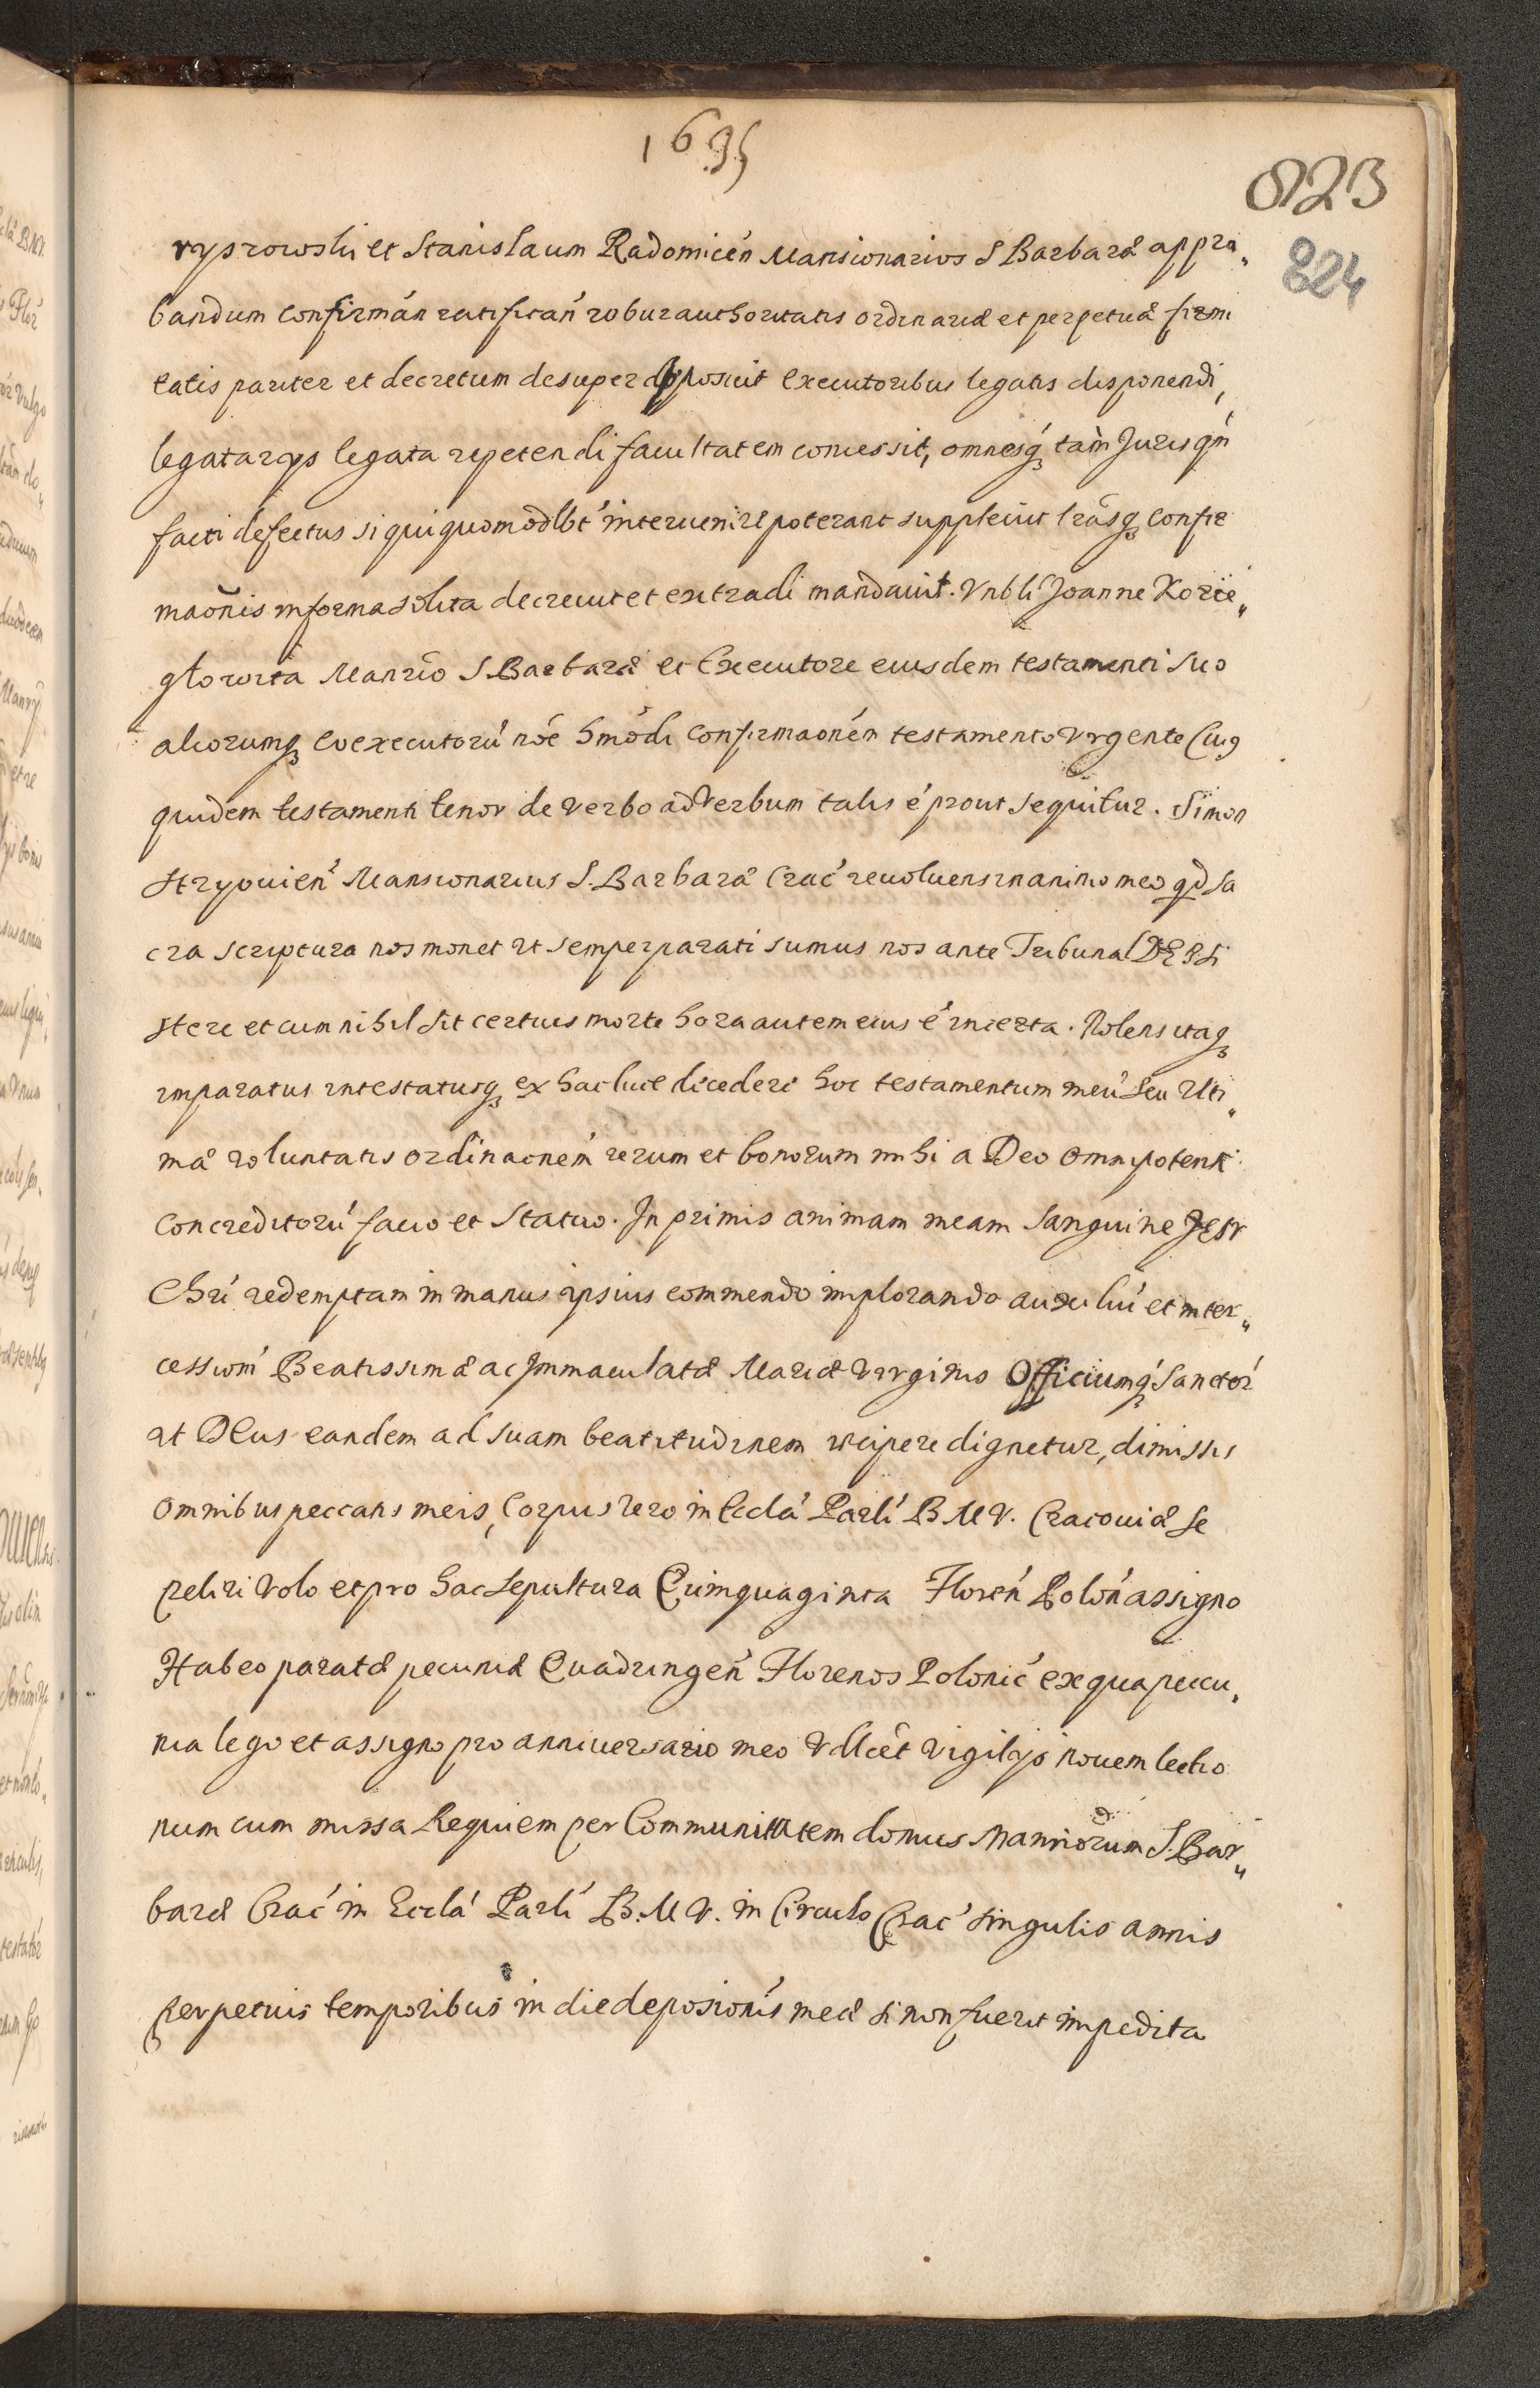 1695
823
824
ryszowski et Stanislaum Radomicén Mansionarios S Barbaræ appro„
bandum confirmán ratificań robur authoritatis ordinariæ et perpetuæ firmi
tatis pariter et decretum desuper apposuit Executoribus legatis disponendi,
legatarys legata repetendi facultatem concessit, omnesq́ tam̀ Juris qm̃
facti defectus si qui quomodlbt́ interuenire poterant suppleuit lrãsq confir
maõnis in forma solita decreuit et extradi mandauit. Vnbli Joanne Korze„
glowita Manrio S Barbaræ et Executore eiusdem testamenti suo
aliorumq coexecutorú noé hmódi confirmaoném testamento Vrgente Cuig
quidem testamenti tenor de Verbo ad Verbum talis é prout sequitur. Simon
Stryouień Mansionarius S. Barbaræ Crać reuoluens in animo meo qd Sa
cra Scriptura nos monet ut semper parati sumus nos ante Tribunal DEI si
stere et cum nihil sit certius morte hora autem eius é incerta. Nolens itaq
imparatus intestatusq ex hac luce dicedere hoc testamentum meú seu Vlti„
mæ voluntatis ordinaoném rerum et bonorum mihi a Deo omnipotenti
concreditorú facio et statuo. In primis animam meam Sanguine Jesv
Chri redemptam in manus ipsius commendo implorando auxiliú et inter„
cessiom̃ Beatissimæ ac Immaculatæ Mariæ Virginis Officiumq́ Sanctor
ut DEus eandem ad suam beatitudinem recipere dignetur, dimissis
omnibus peccatis meis, Corpus Vero in Ecclá Parlí B M V. Cracouiæ Se
peliri Volo et pro hac Sepultura Quinquaginta Florén Polón assigno
Habeo paratæ pecuniæ Quadringeń Florenos Polonić ex qua pecu„
nia lego et assigno pro anniuersario meo Vdlićet Vigilijs nouem lectio
num cum missa Requiem per Communitatem domus Manriorum S. Bar„
baræ Crać in Ecclá Parlí B. M V. in Circulo Crać singulis annis
perpetuis temporibus in die deposionís meæ si non fuerit impedita